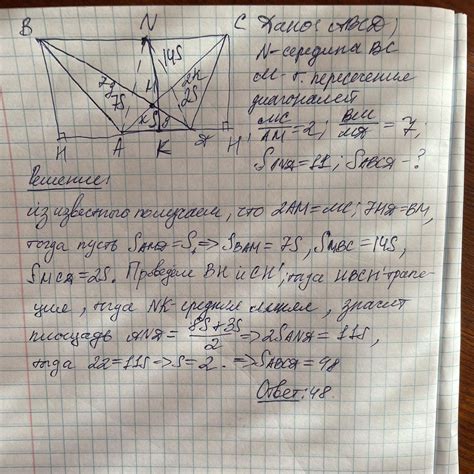 B N C
Дано: ABCD;
N-середина BC
M - т. пересечения
диагоналей
MC/AM = 2; BM/MД = 7,
S AND = 11; S ABCД - ?
14S
7y
7S
2S
H A K Д H'
Решение:
из известного получаем, что 2AM=MC; 7MД=BM,
тогда пусть S AMД = S, => S BAM = 7S, S MBC = 14S,
S MCД = 2S. Проведем BH и CH'; тогда HBCH' трапе-
ция, тогда NK-средняя линия, значит
площадь ANД = 8S+3S/2 => 2S ANД = 11S,
тогда 22=11S => S=2. => S ABCД = 48
Ответ: 48.